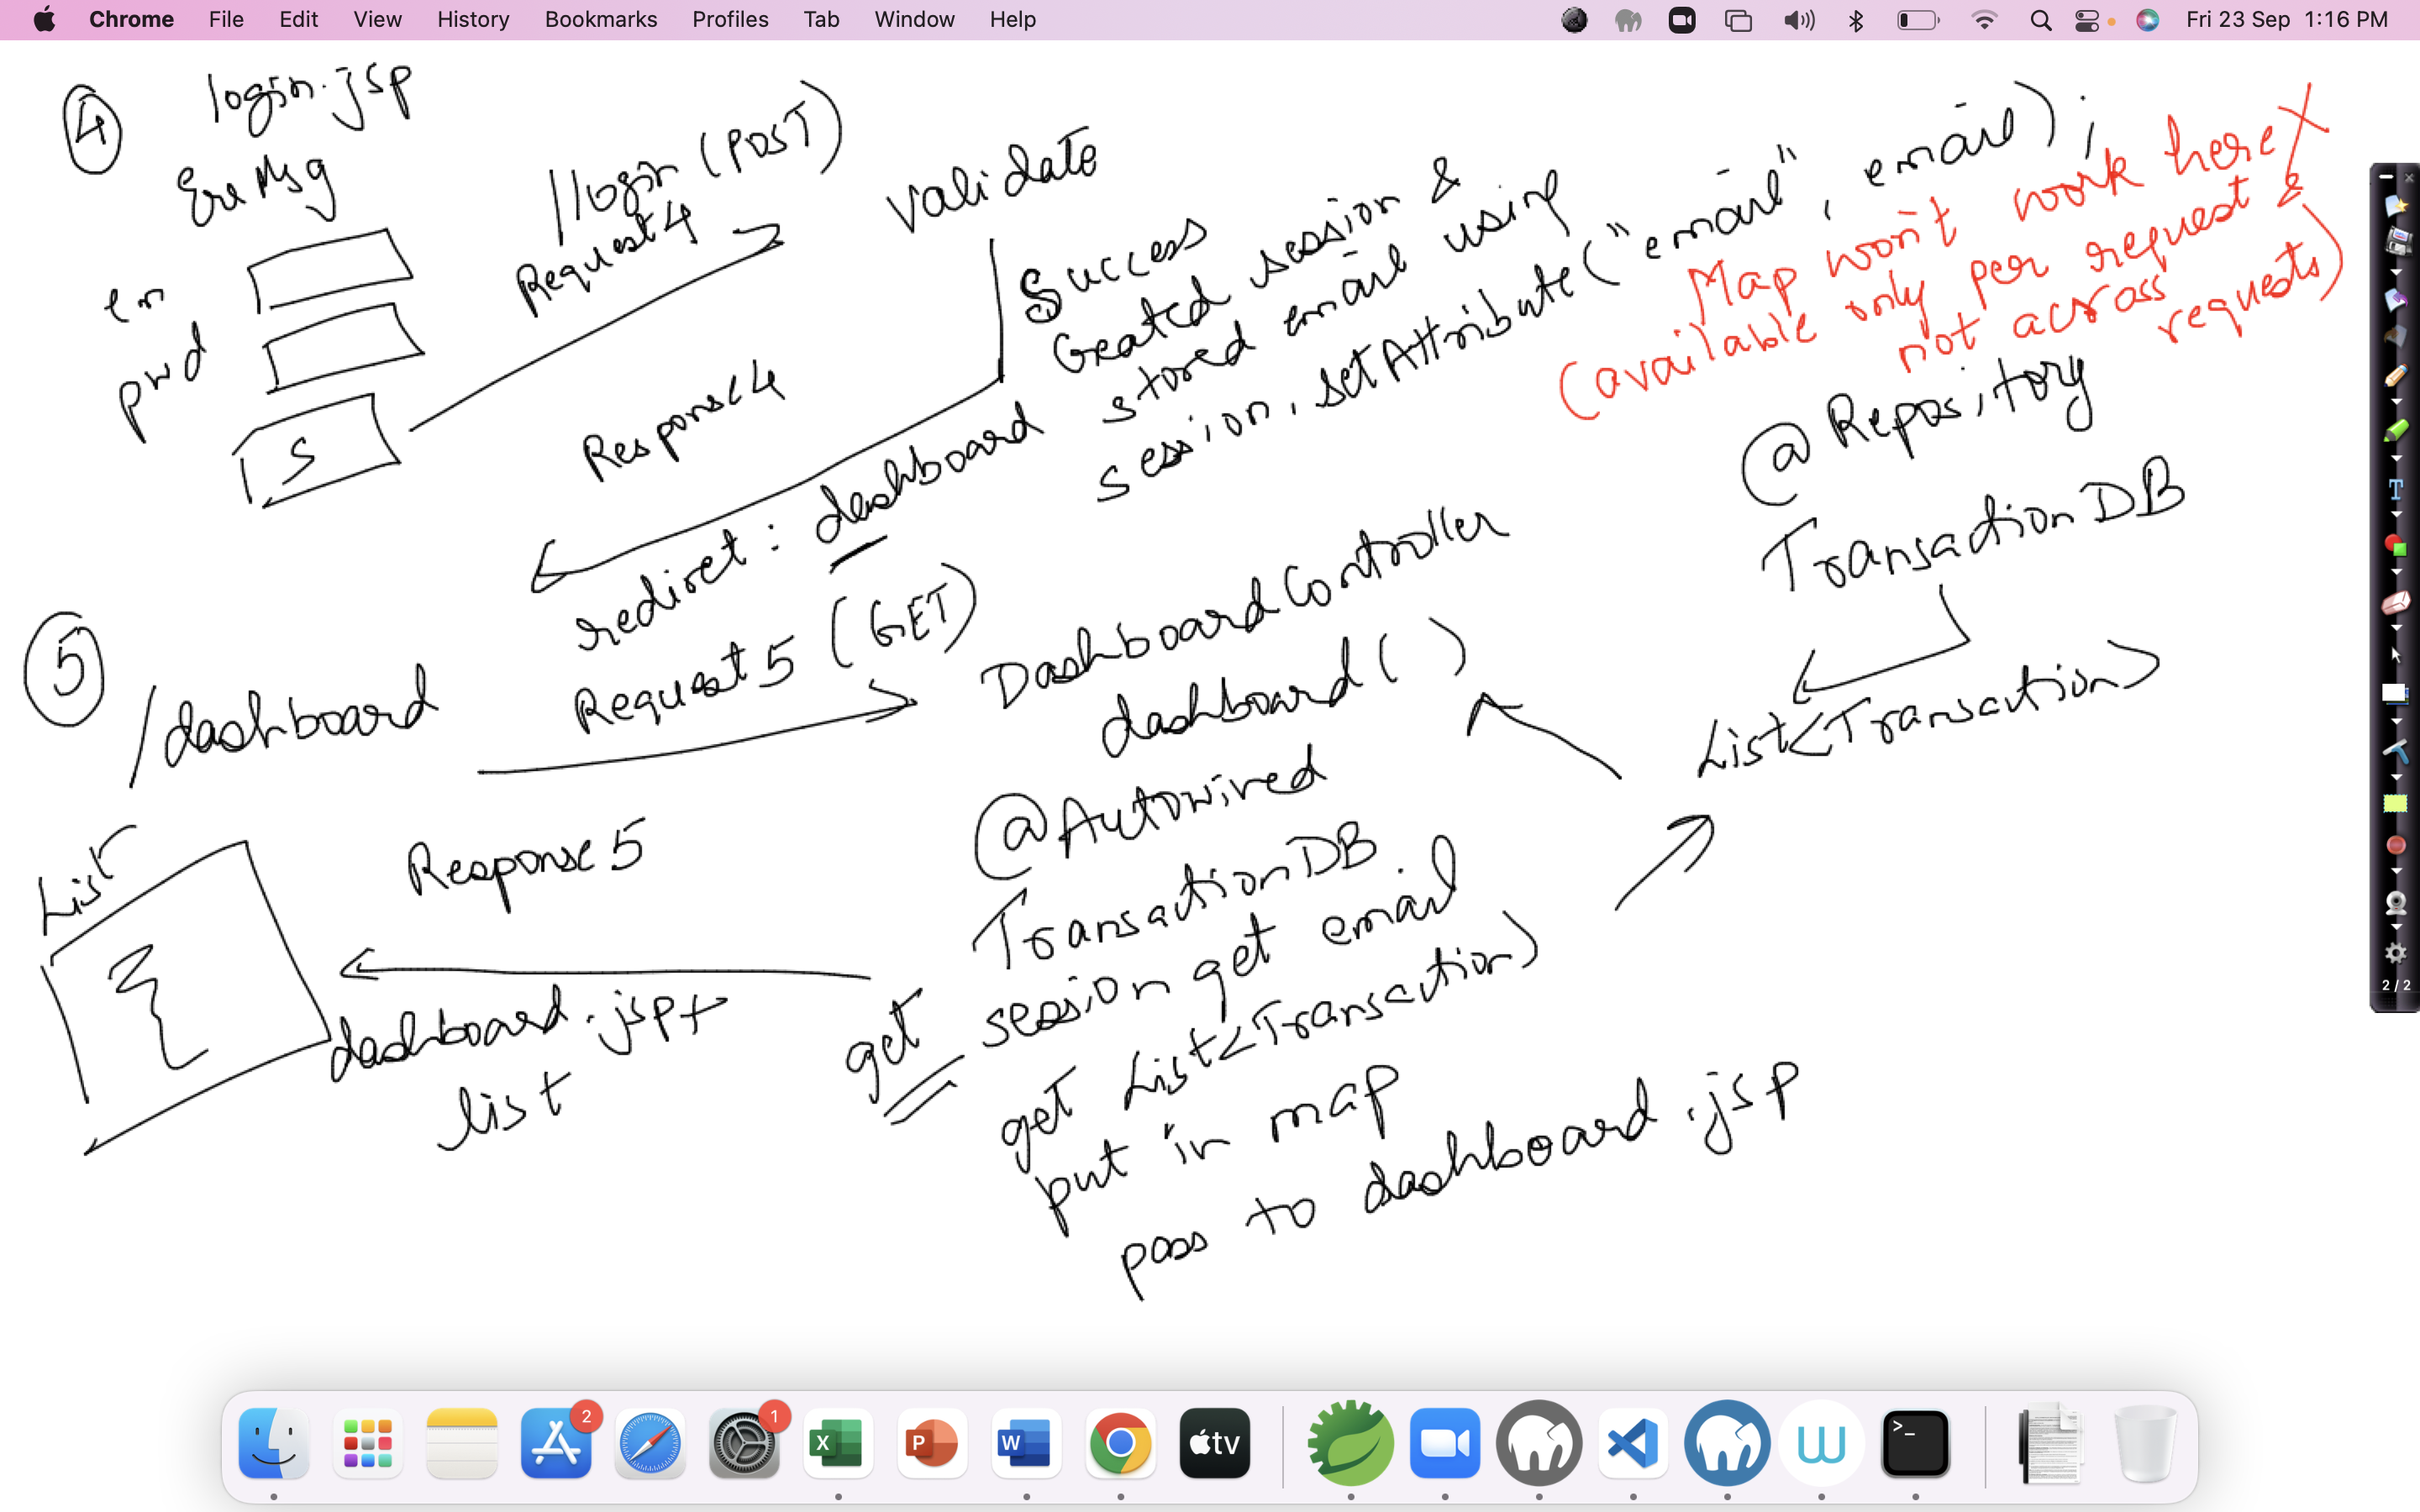 Chrome File Edit View History Bookmarks Profiles Tab Window Help Fri 23 Sep 1:16 PM
4 login.jsp
Err Msg
em
pwd
S
//login (POST)
Request 4
validate
Success
Created session &
stored email using
session.setAttribute("email", email);
Map won't work here X
(available only per request &
not across requests)
Response 4
redirect: dashboard
@Repository
TransactionDB
List<Transaction>
5 /dashboard
Request 5 (GET)
DashboardController
dashboard()
@Autowired
TransactionDB
get session get email
get List<Transaction>
put in map
pass to dashboard.jsp
Response 5
dashboard.jsp +
list
List
2/2
2
1
X
P
W
tv
W
>_